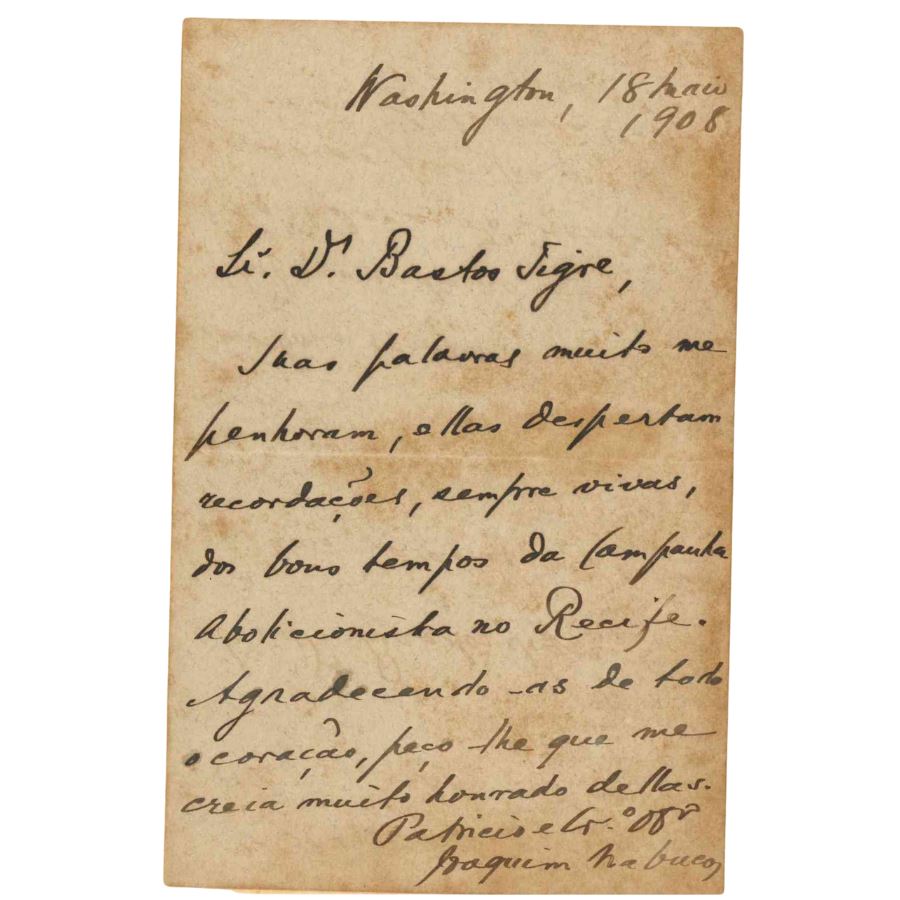 Washington, 18 maio
1908
Sr. Dr. Bastos Tigre,
Suas palavras muito me
penhoram, ellas despertam
recordações, sempre vivas,
dos bons tempos da Campanha
Abolicionista no Recife.
Agradecendo-as de todo
o coração, peço-lhe que me
creia muito honrado dellas.
Patricio e Cr.º
Joaquim Nabuco